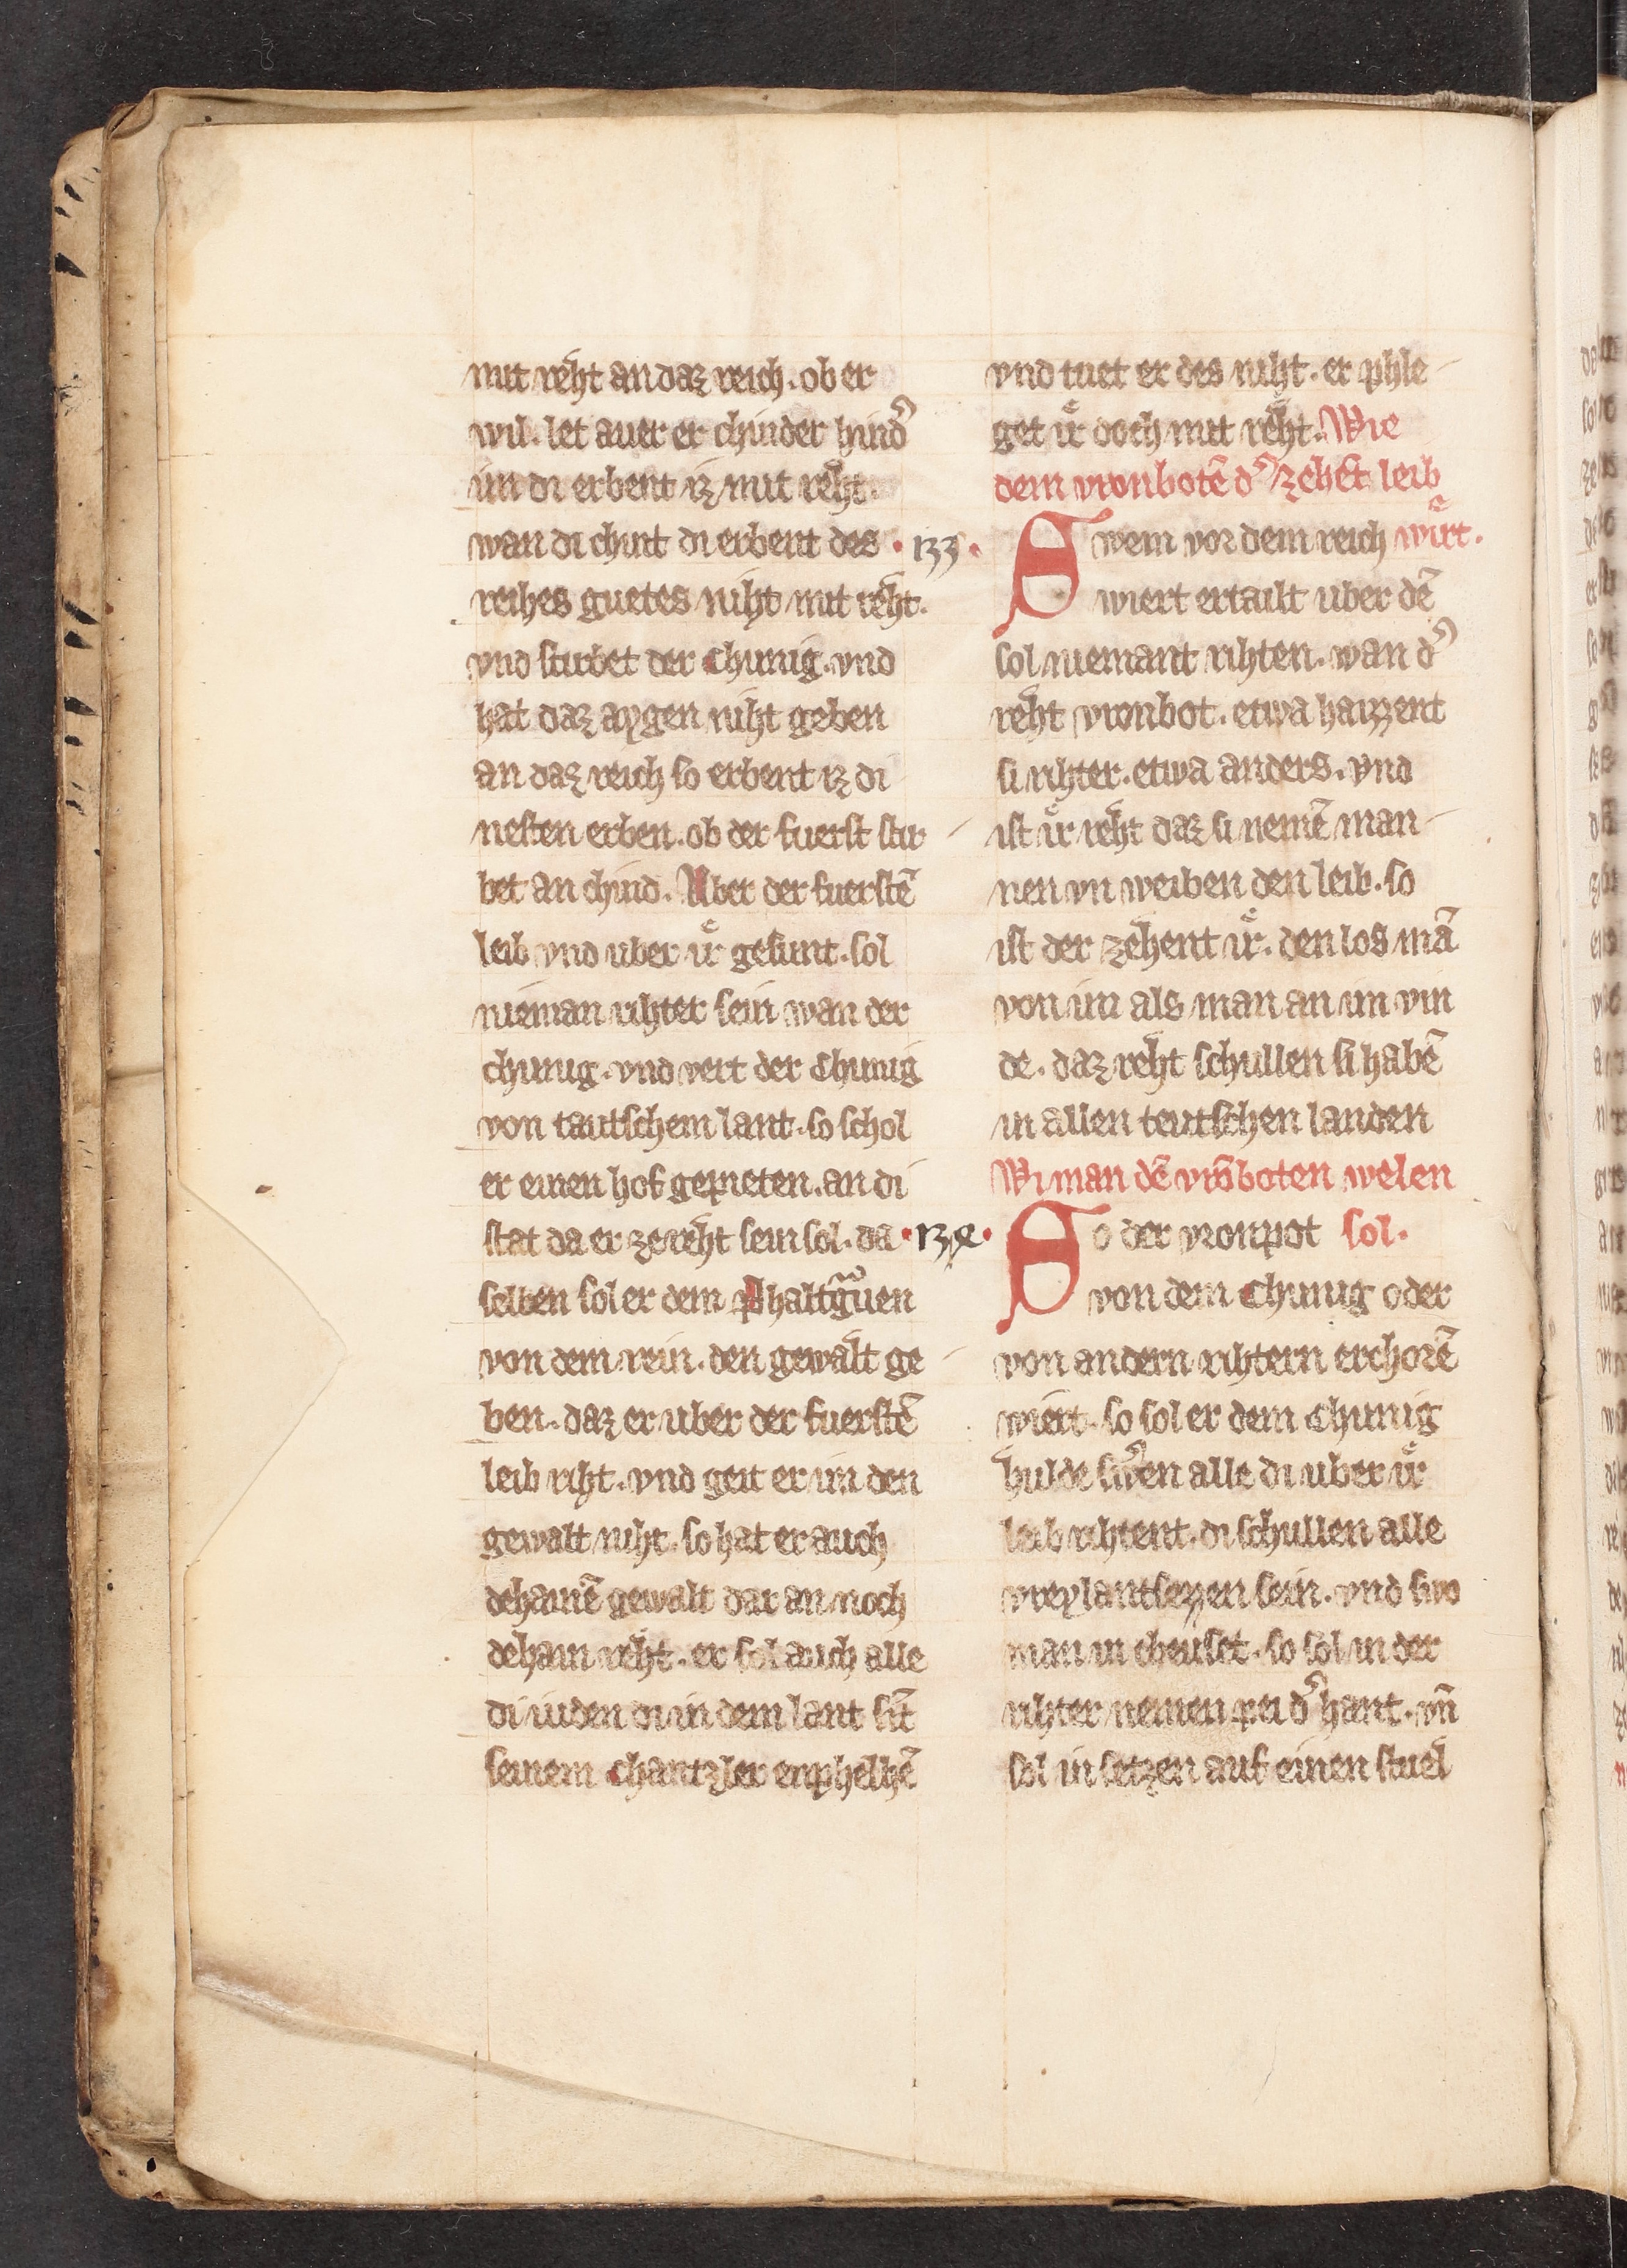 mit reht an daz reich. ob er
wil. let auer er chinder hind̾
im di erbent iz mit reht.
wan di chint di erbent des
reihes guetes niht mit reht.
vnd stirbet der Chunig. vnd
hat daz aygen niht geben
an daz reich so erbent iz di
nesten erben. ob der fuerst stir
bet an chind. Uber der fuerstē
leib vnd uber ir gesunt. sol
nieman rihter sein wan der
chunig. vnd vert der Chunig
von tautschem lant. so schol
er einen hof gepieten. an di
stat da er ze reht sein sol. da
selben sol er dem Phaltzgrauen
von dem rein. den gewalt ge
ben. daz er uber der fuerstē
leib riht. vnd geit er im den
gewalt niht. so hat er auch
dehainē gewalt dar an noch
dehain reht. er sol auch alle
di iuden di in dem lant sīt
seinem Chantzler enphelhē
vnd tuet er des niht. er phle
get ir doch mit reht. Wie
dem vronbotē d̾ zehēt leib
wirt.
.133. Swem vor dem reich
wiert ertailt uber dē
sol niemant rihten. wan d̾
reht vronbot. etwa haizzent
si rihter. etwa anders. vnd
ist ir reht daz si nemē man
nen vn weiben den leib. so
ist der zehent ir. den los mā
von im als man an im vin
de. daz reht schullen si habē
in allen teutschen landen
Wi man dē vrōboten welen
sol.
.134. So der vronpot
von dem Chunig oder
von andern rihtern erchorē
wiert. so sol er dem Chunig
hulde sweren alle di uber ir
leib rihtent. di schullen alle
vreylantsezzen sein. vnd swo
man in cheuset. so sol in der
rihter nemen pei d̾ hant. vn̄
sol in setzen auf einen stuel